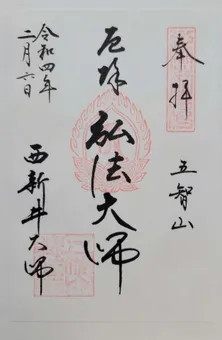 奉拝
五智山
厄除
弘法大師
西新井大師
令和四年
二月六日